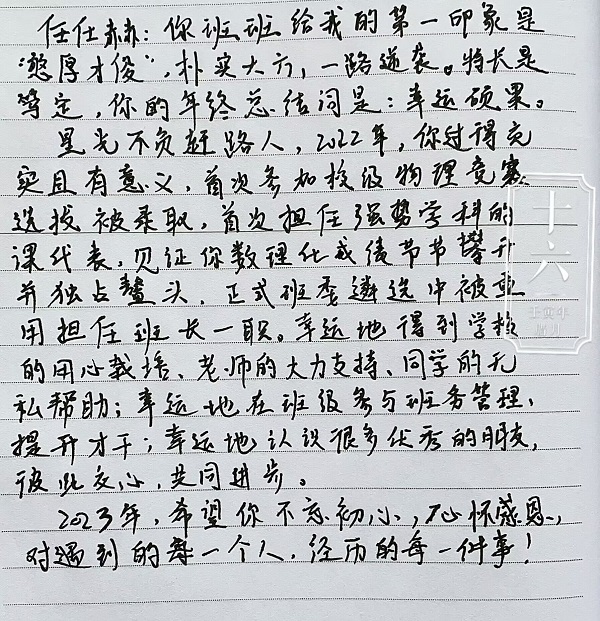 任仕赫：你班班给我的第一印象是
“憨厚才俊”，朴实大方，一路逆袭。特长是
笃定，你的年终总结词是：幸运硕果。
星光不负赶路人，2022年，你过得充
实且有意义，首次参加校级物理竞赛
选拔被录取，首次担任强势学科的
课代表，见证你数理化成绩节节攀升
并独占鳌头，正式班委遴选中被重
用担任班长一职。幸运地得到学校
的用心栽培、老师的大力支持、同学的无
私帮助；幸运地在班级参与班务管理、
提升才干；幸运地认识很多优秀的朋友，
彼此交心，共同进步。
2023年，希望你不忘初心，心怀感恩，
对遇到的每一个人，经历的每一件事！
十六
壬寅年
腊月